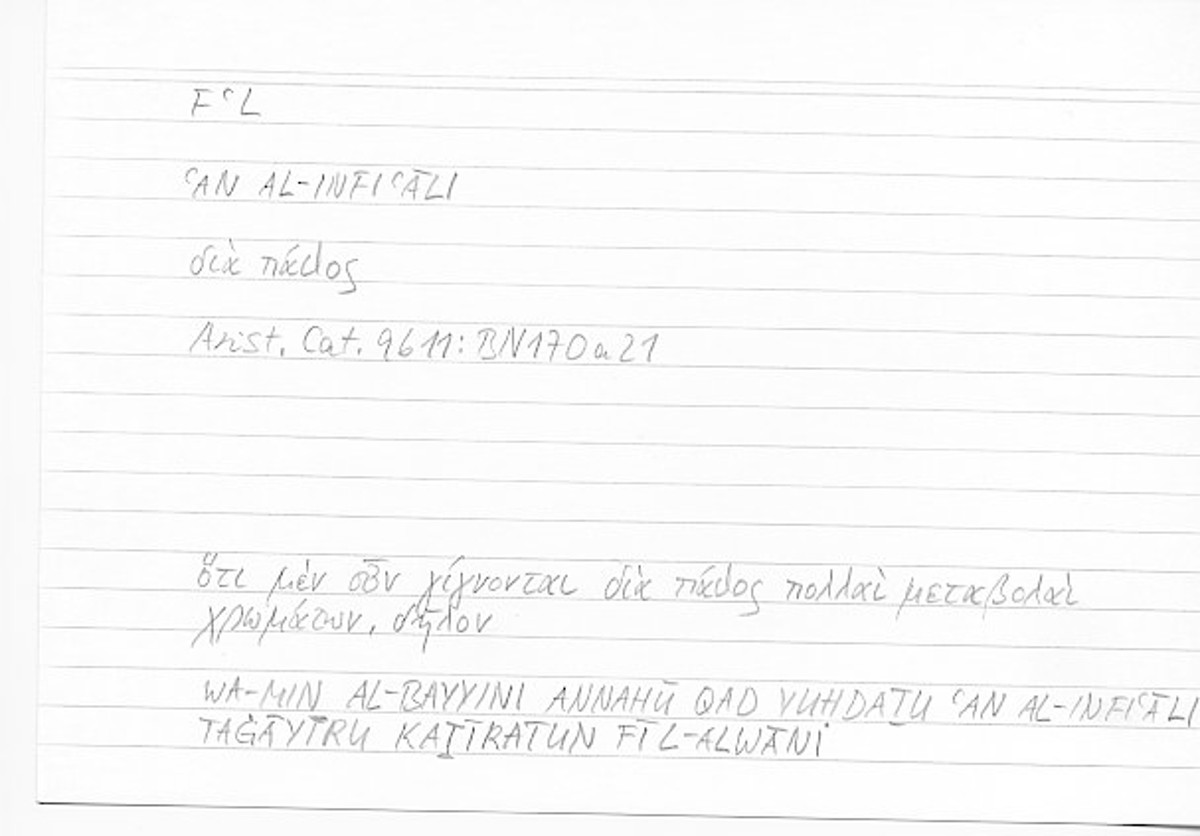 FʿL
ʿAN AL-INFIʿĀLI
διὰ πάθος
Arist. Cat. 9b11: BN170a21
ὅτι μὲν οὖν γίγνονται διὰ πάθος πολλαὶ μεταβολαὶ
χρωμάτων, δῆλον
WA-MIN AL-BAYYINI ANNAHŪ QAD YUHDAṮU ʿAN AL-INFIʿĀLI
TAĠĀYĪRU KAṮĪRATUN FĪ L-ALWĀNI